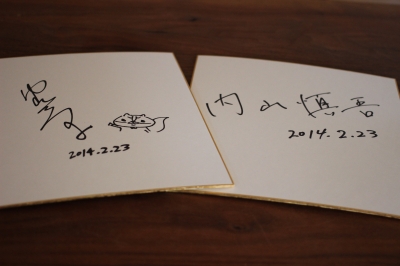 2014.2.23
内山慎吾
2014.2.23